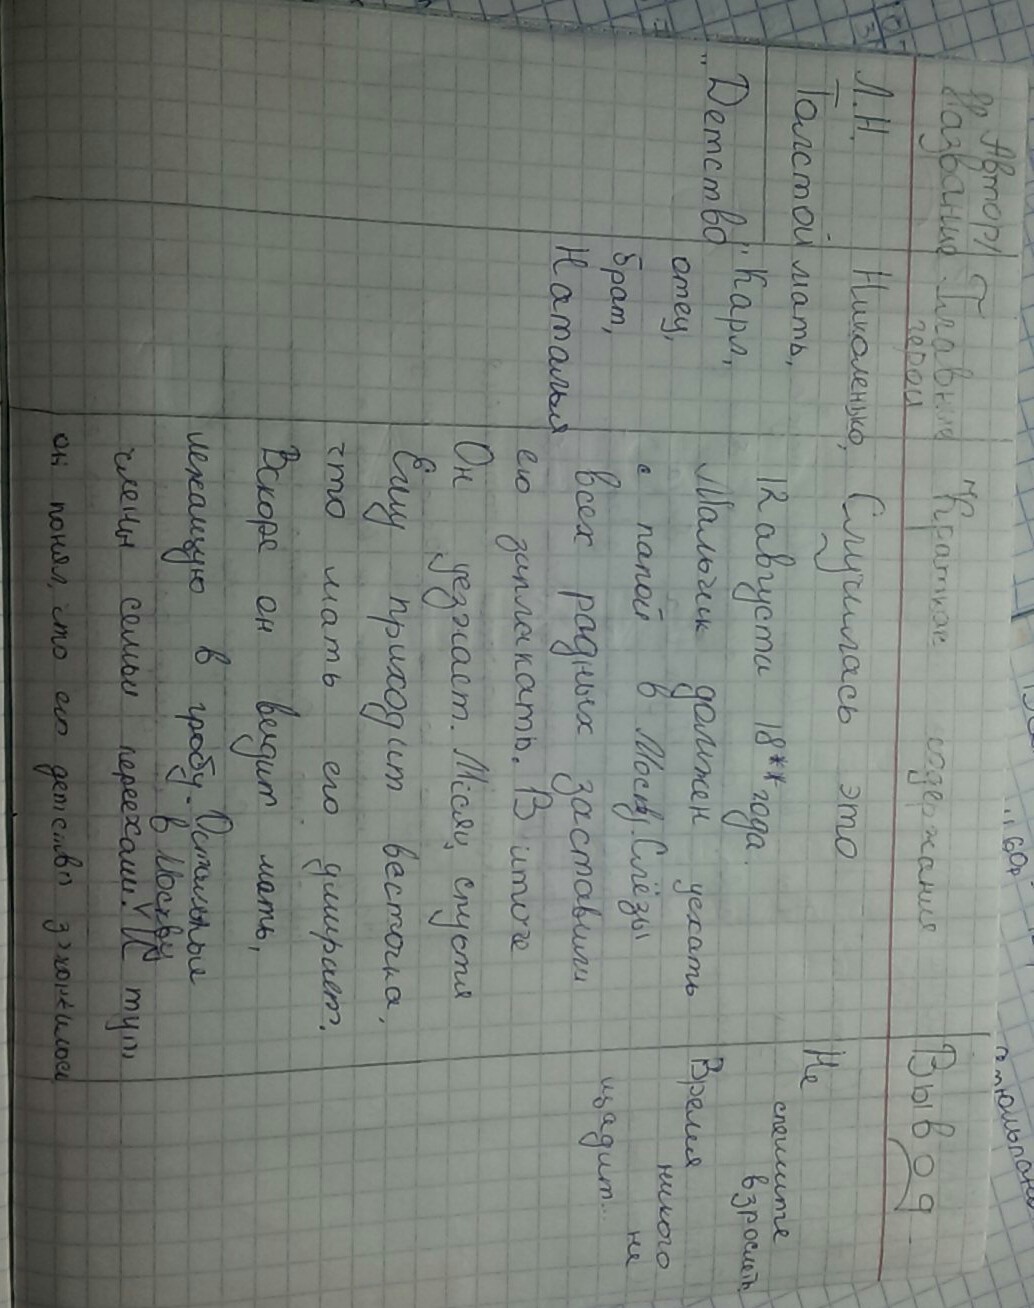 Автор/
Название
Главные
герои
Краткое содержание
Вывод
Л.Н.
Толстой
"Детство"
Николенько,
мать,
Карл,
отец,
брат,
Наталья
Случилась это
12 августа 18** года.
Мальчик должен уехать
с папой в Москву. Слёзы
всех родных заставили
его заплакать. В итоге
Он уезжает. Месяц спустя
Ему приходит весточка,
что мать его умирает.
Вскоре он видит мать,
лежащую в гробу. Остальные
члены семьи переехали. в Москву И тут
он понял, что его детство закончилось
Не
спешите
взрослеть
Время
никого не
щадит...